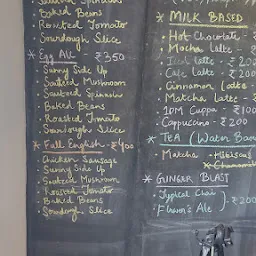 Baked Beans
Roasted Tomato
Sourdough Slice
* Egg All - ₹350
- Sunny Side Up
- Sauteed Mushroom
- Sauteed Spinach
- Baked Beans
- Roasted Tomato
- Sourdough Slice
* Full English - ₹400
- Chicken Sausage
- Sunny Side Up
- Sauteed Mushroom
- Roasted Tomato
- Baked Beans
- Sourdough Slice
* MILK BASED
• Hot Chocolate
• Mocha Latte
Latte - ₹200
• Cafe Latte - ₹200
• Cinnamon Latte
• Matcha Latte
• IDM Cuppa - ₹100
• Cappuccino - ₹200
* TEA (Water Based
• Matcha
* GINGER BLAST
• Typical Chai
Ale } - ₹200